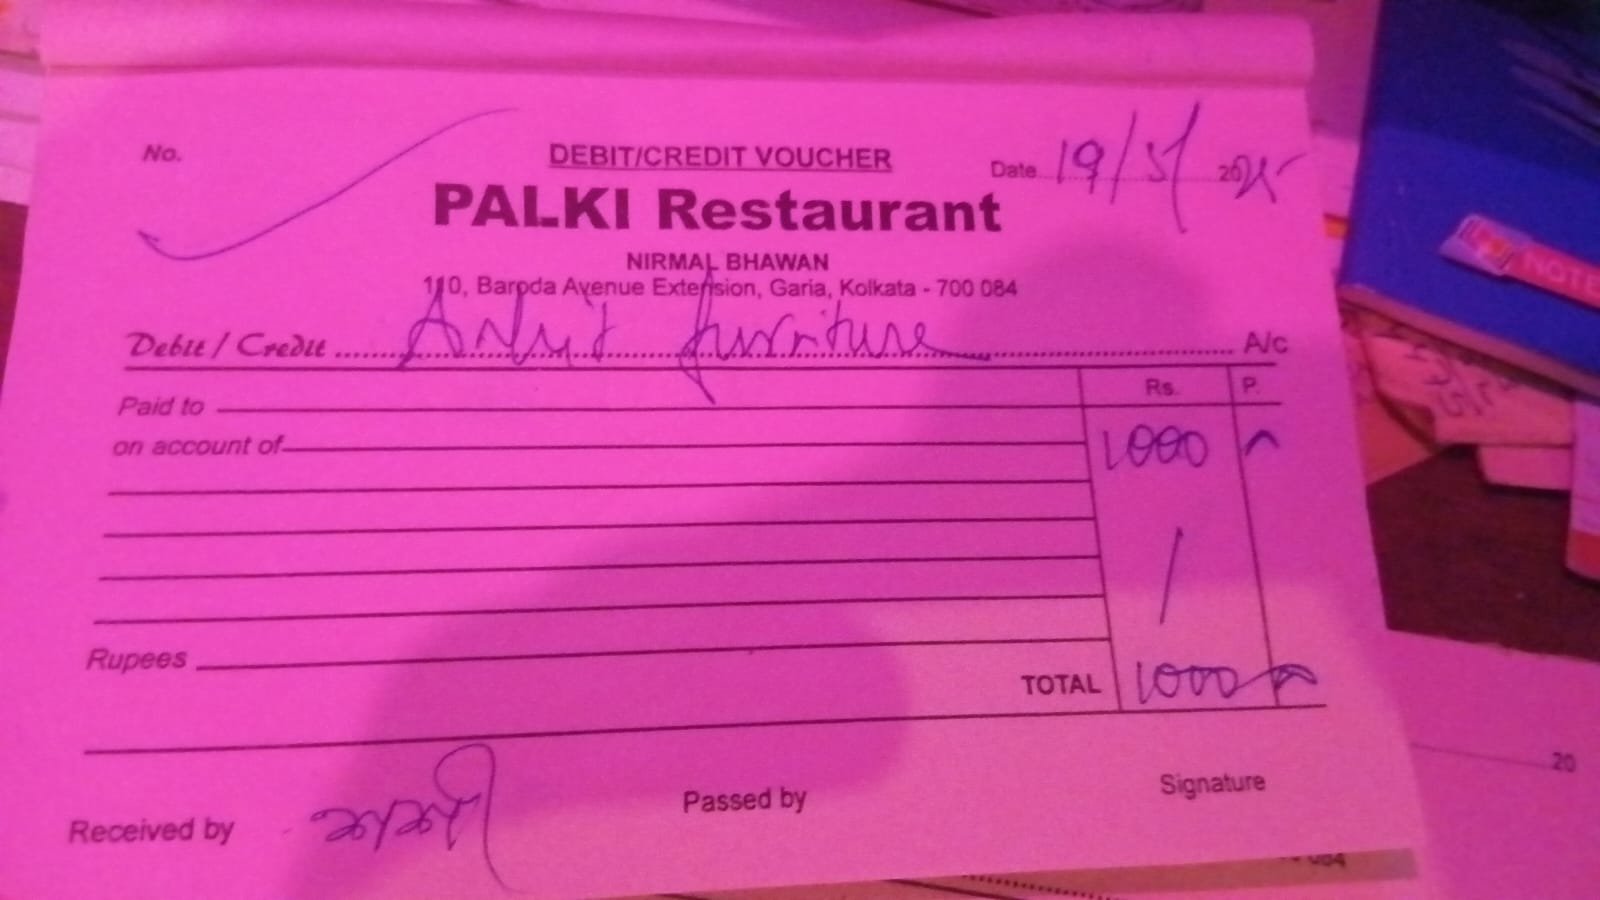 No.
DEBIT/CREDIT VOUCHER
Date 19/5/ 2025
PALKI Restaurant
NIRMAL BHAWAN
110, Baroda Avenue Extension, Garia, Kolkata - 700 084
Debit / Credit Ankit furniture A/c
Rs. P.
Paid to
on account of 1000
Rupees
TOTAL 1000
Received by
Passed by
Signature
NOTE
20
084